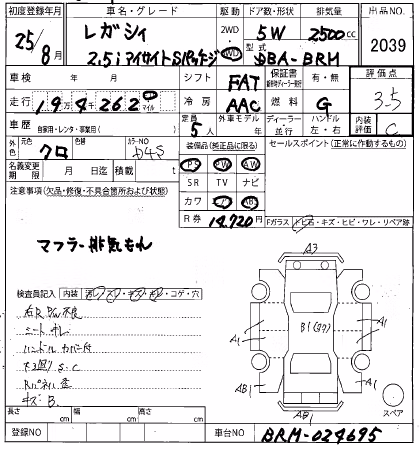 初度登録年月 車名・グレード 駆動 ドア数・形状 排気量 出品NO.
25/8月 レガシィ 2WD 4WD 5W 2500cc 2039
2.5i アイサイトSパッケージ 型式 DBA-BRM
車検 年 月 シフト FAT 保証書 評価点
走行 19万4千262 マイル 冷房 AAC 燃料 G 3.5
車歴 自家用・レンタ・事業用( ) 定員 5人 外車モデル ディーラー・並行 ハンドル 左・右 内装評価 C
外色 元色 クロ 色替 カラーNO D4S 装備品(純正品に限る) セールスポイント(正常に作動するもの)
名義変更期限 月 日迄 積載 t PS PW AW
注意事項(欠品・修復・不具合箇所および状態) SR TV ナビ
カワ ABS
R券 14,720円 Fガラス トビ石・キズ・ヒビ・ワレ・リペア跡
マフラー排気もれ
A3
検査員記入 内装 ヨゴレ・スレ・キズ・キレ・コゲ・穴
ハンドルカバー付
キズ B.
B1 A1 A1 A1 A1
AB1 AB1 AB1
スペア
長さ cm 幅 cm 高さ cm
登録NO 車台NO BRM-024695